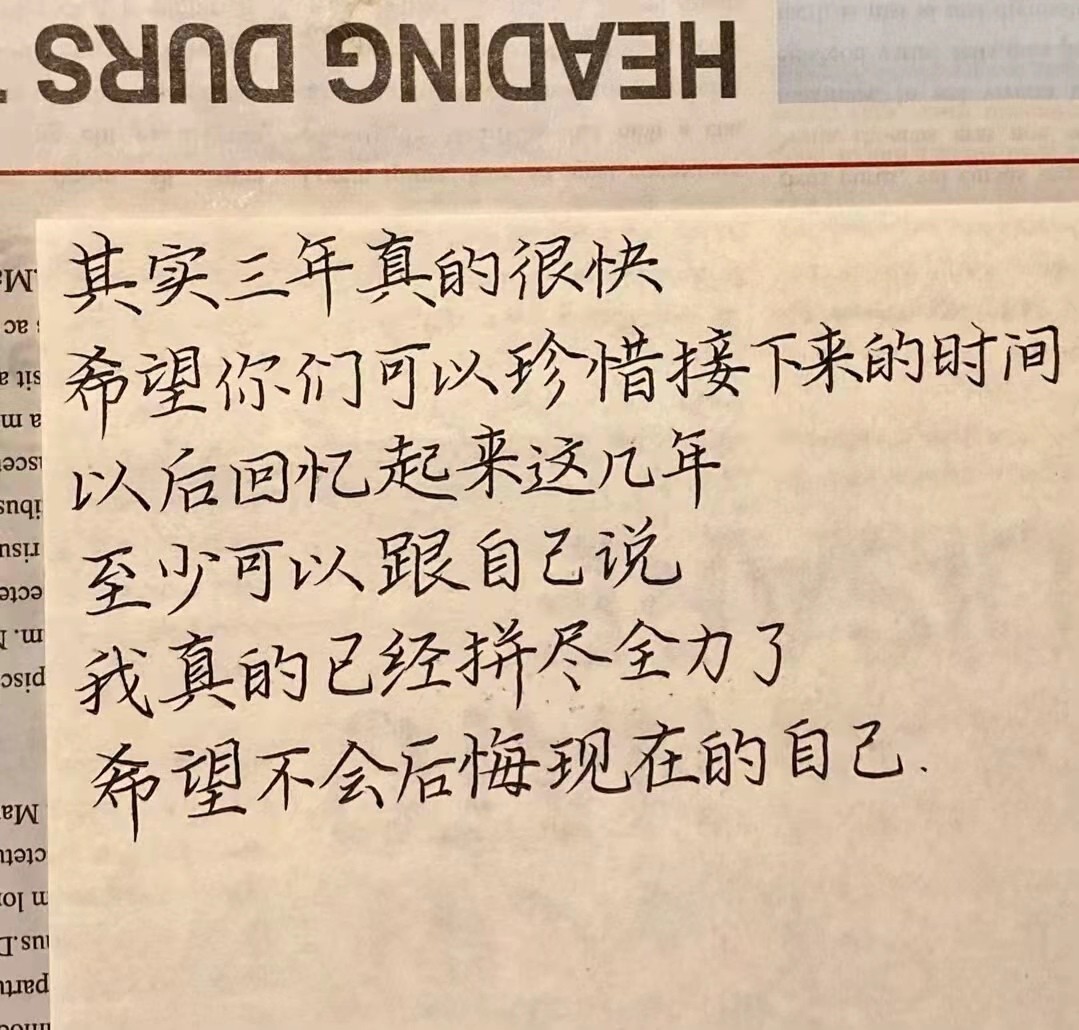 HEADING DURS
其实三年真的很快
希望你们可以珍惜接下来的时间
以后回忆起来这几年
至少可以跟自己说
我真的已经拼尽全力了
希望不会后悔现在的自己.